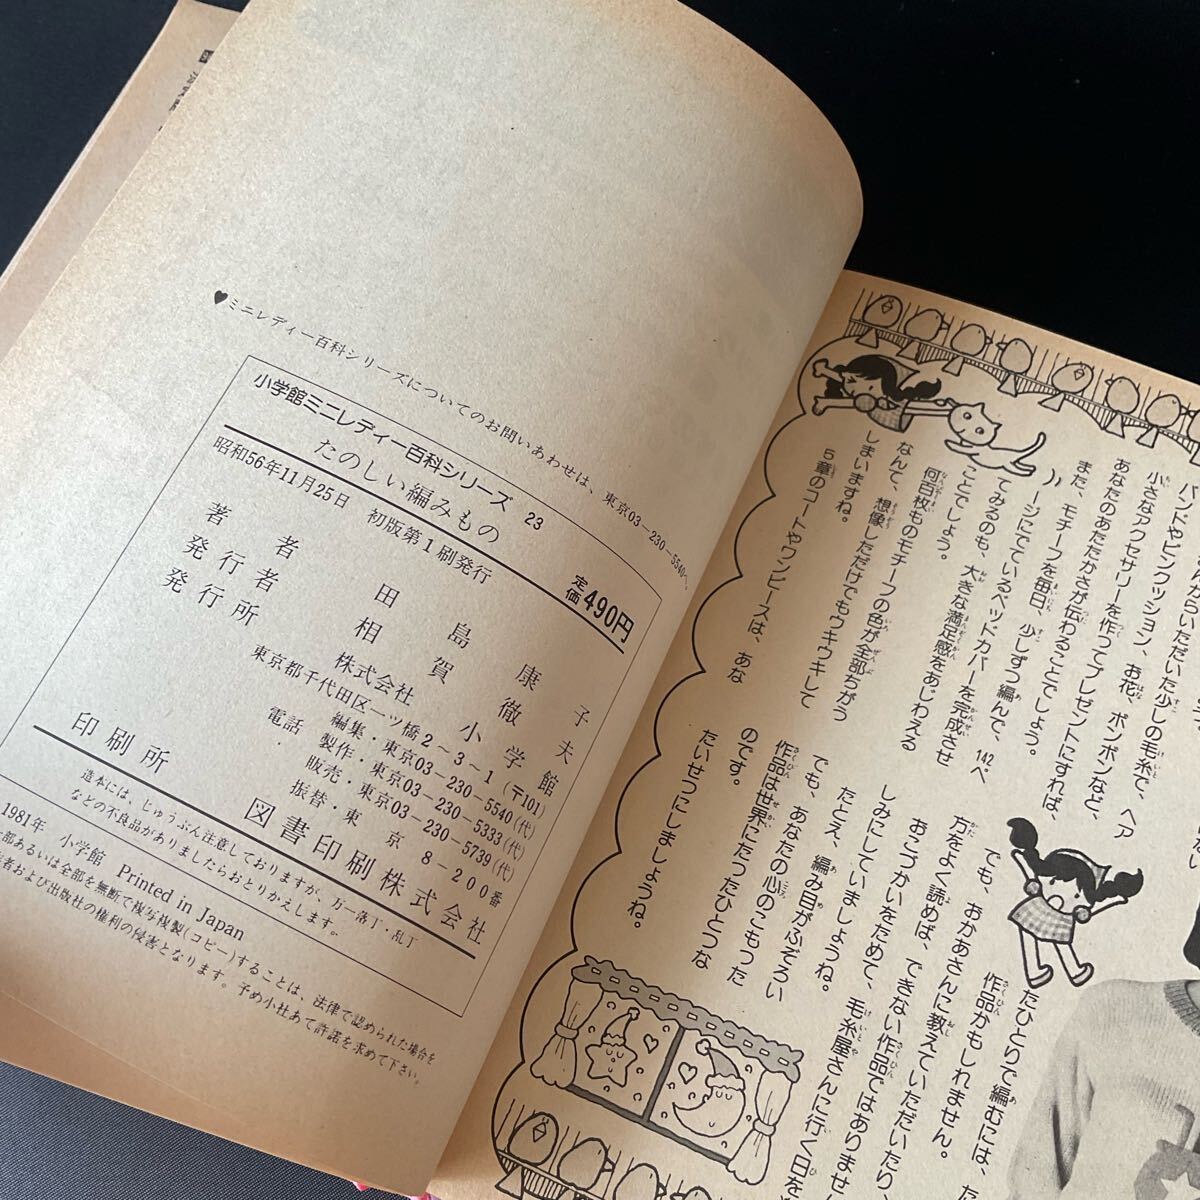 ♥ミニレディー百科シリーズについてのお問いあわせは、東京03-230-5540へ。
小学館ミニレディー百科シリーズ 23
たのしい編みもの
昭和56年11月25日 初版第1刷発行
定価490円
著者 田島康子
発行者 相賀徹夫
発行所 株式会社 小学館
東京都千代田区一ツ橋2-3-1(〒101)
電話 編集・東京03-230-5540(代)
製作・東京03-230-5333(代)
販売・東京03-230-5739(代)
振替・東京 8-200番
印刷所 図書印刷株式会社
造本には、じゅうぶん注意しておりますが、万一落丁・乱丁
などの不良品がありましたらおとりかえします。
1981年 小学館 Printed in Japan
部あるいは全部を無断で複写複製(コピー)することは、法律で認められた場合を
者および出版社の権利の侵害となります。予め小社あて許諾を求めて下さい。
いただいた少しの毛糸で、ヘア
バンドやピンクッション、お花、ボンボンなど、
小さなアクセサリーを作ってプレゼントにすれば、
あなたのあたたかさが伝わることでしょう。
また、モチーフを毎日、少しずつ編んで、142ペ
ージにでているベッドカバーを完成させ
てみるのも、大きな満足感をあじわえる
ことでしょう。
何百枚ものモチーフの色が全部ちがう
なんて、想像しただけでもウキウキして
しまいますね。
5章のコートやワンピースは、あな
たひとりで編むには、た
作品かもしれません。
でも、おかあさんに教えていただいたり、
方をよく読めば、できない作品ではありませ
おこづかいをためて、毛糸屋さんに行く日を
しみにしていましょうね。
たとえ、編み目がふぞろい
でも、あなたの心のこもった
作品は世界にたったひとつな
のです。
たいせつにしましょうね。